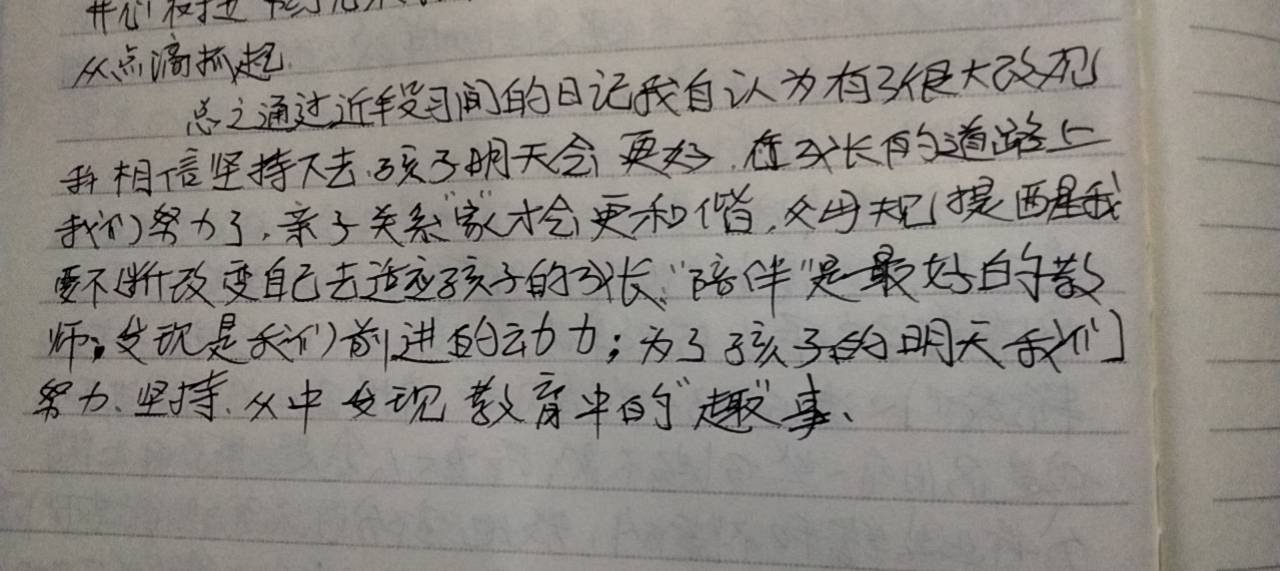 从点滴抓起.
总之通过近半段时间的日记我自认为有了很大改观
我相信坚持下去.孩子明天会更好.在成长的道路上
我们努力了,亲子关系"家"才会更和谐,父母规提醒是我
要不断改变自己去适应孩子的成长."陪伴"是最好的教
师;发现是我们前进的动力;为了孩子的明天我们
努力、坚持、从中发现教育中的"趣"事、